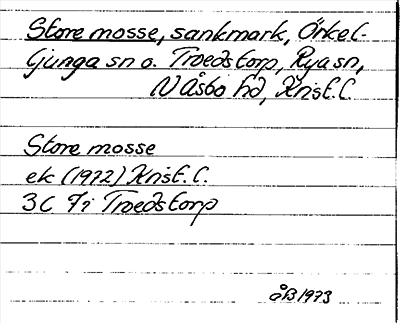 Store mosse, sankmark, Örkel-
ljunga sn o. Troedstorp, Rya sn,
N Åsbo hd, Krist. L.
Store mosse
ek (1972) Krist. L.
3C 7i Troedstorp
åB 1973